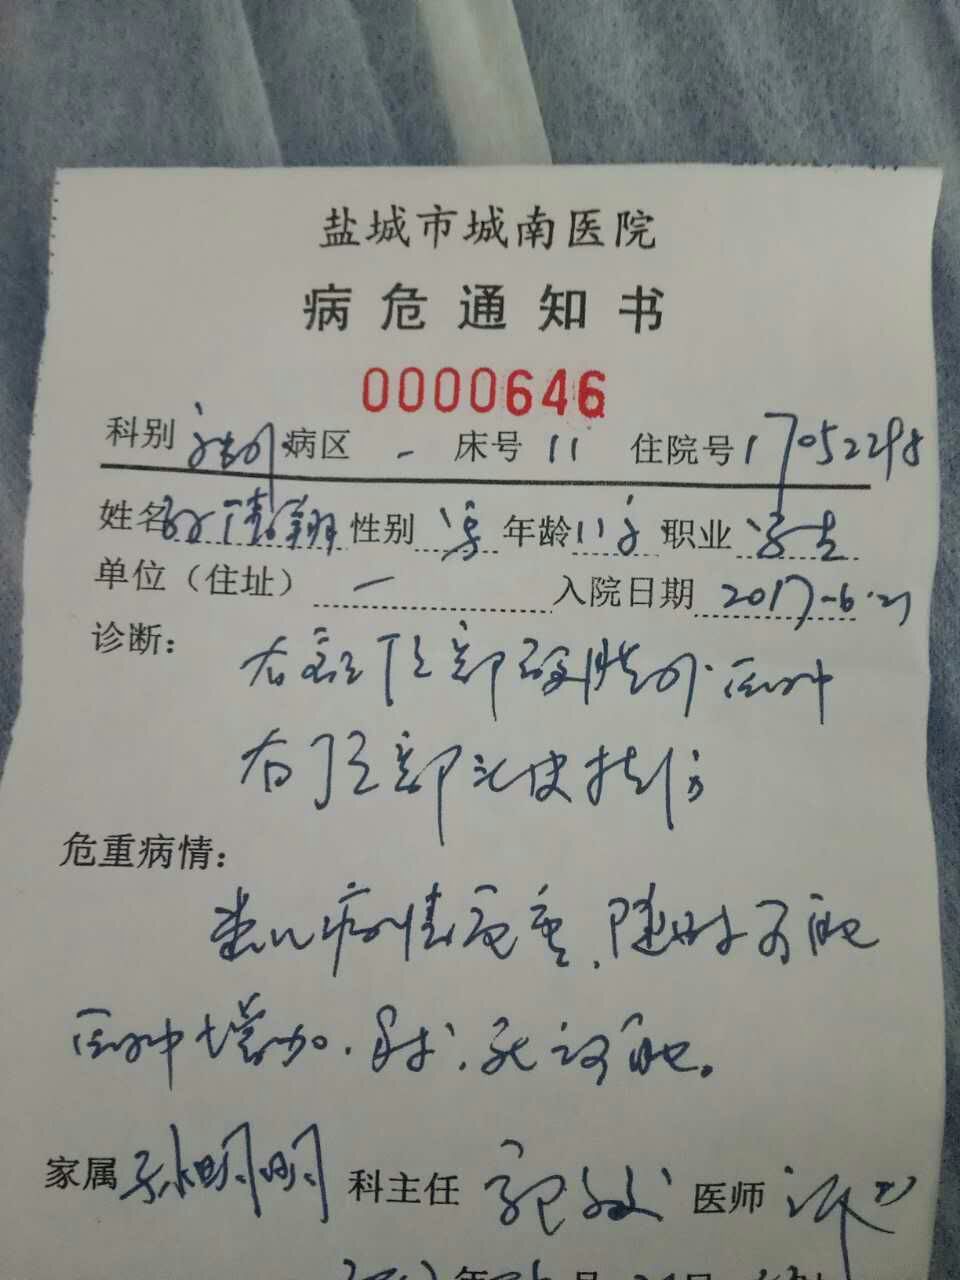 盐城市城南医院
病危通知书
0000646
科别 病区 一 床号 11 住院号 17052298
姓名 性别 男 年龄 11岁 职业 学生
单位（住址） 一 入院日期 2017-6-21
诊断：
右颞顶部硬膜外血肿
右顶部头皮挫伤
危重病情：
患儿病情危重，随时可能
血肿增加．死亡可能。
家属 孙明明 科主任 医师
年 月 日